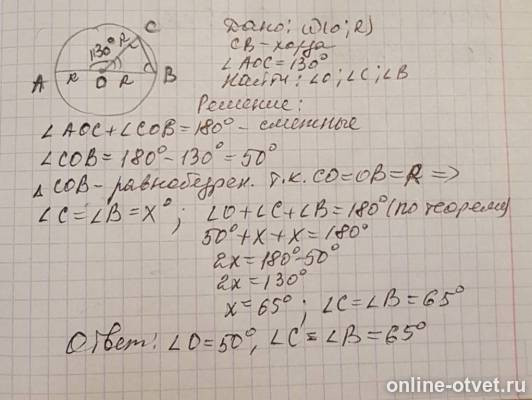 C
130°
R
A
R
O
R
B
Дано: ω(O; R)
CB - хорда
∠AOC = 130°
Найти: ∠O; ∠C; ∠B
Решение:
∠AOC + ∠COB = 180° - смежные
∠COB = 180° - 130° = 50°
△COB - равнобедрен. т.к. CO = OB = R =>
∠C = ∠B = x°; ∠O + ∠C + ∠B = 180° (по теореме)
50° + x + x = 180°
2x = 180° - 50°
2x = 130°
x = 65°; ∠C = ∠B = 65°
Ответ: ∠O = 50°, ∠C = ∠B = 65°
online-otvet.ru